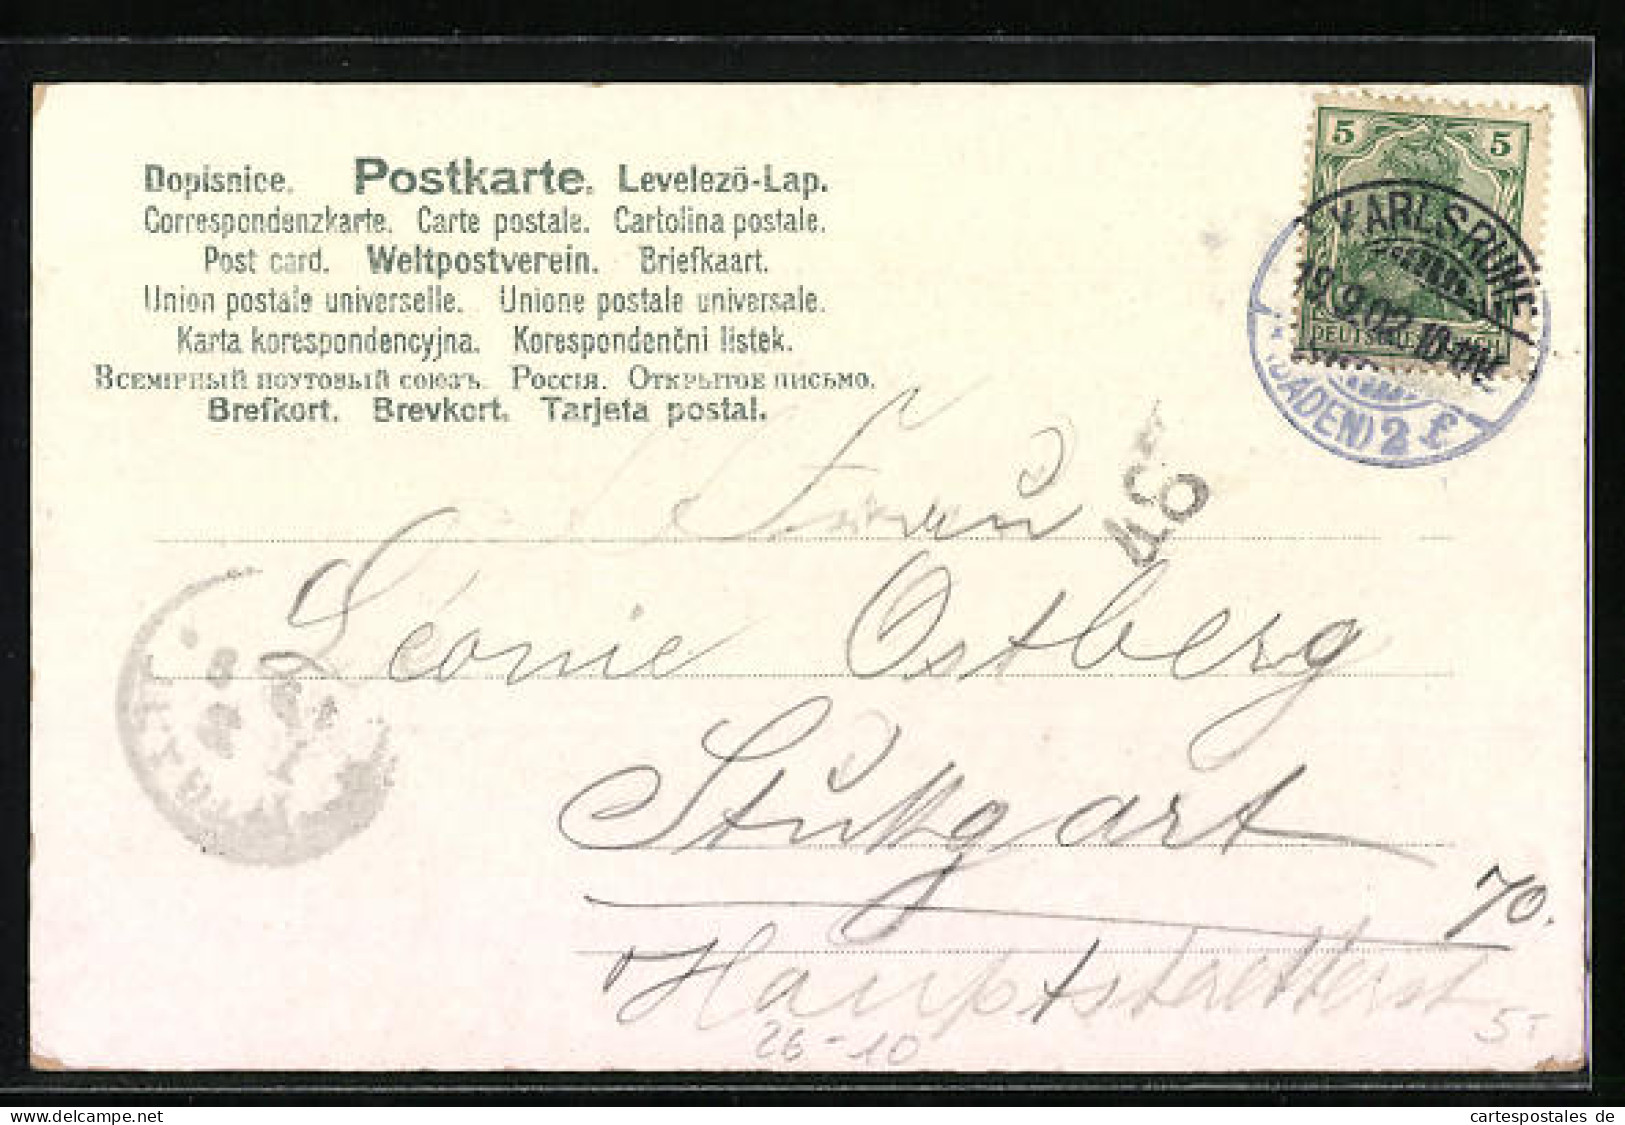 Dopisnice. Postkarte. Levelező-Lap.
Correspondenzkarte. Carte postale. Cartolina postale.
Post card. Weltpostverein. Briefkaart.
Union postale universelle. Unione postale universale.
Karta korespondencyjna. Korespondenční listek.
Всемірный почтовый союзъ. Россія. Открытое письмо.
Brefkort. Brevkort. Tarjeta postal.
5 5
KARLSRUHE
19.9.02. 10-11N
(BADEN) 2 f
46
Frau
Léonie Ostberg
Stuttgart
70.
26-10
cartespostales de